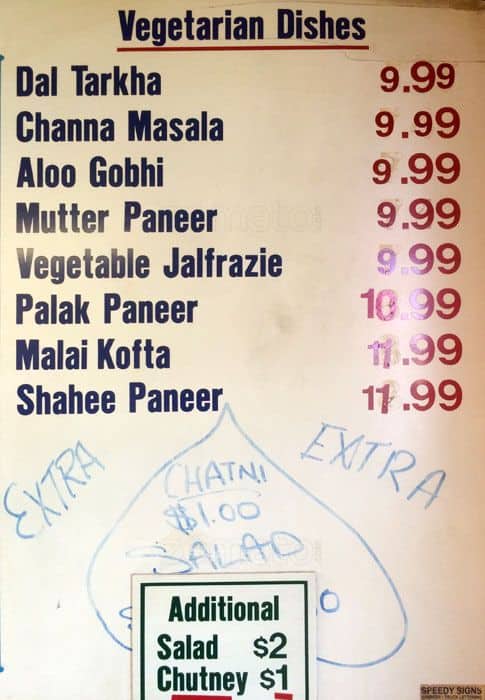 Vegetarian Dishes
Dal Tarkha 9.99
Channa Masala 9.99
Aloo Gobhi 9.99
Mutter Paneer 9.99
Vegetable Jalfrazie 9.99
Palak Paneer 10.99
Malai Kofta 11.99
Shahee Paneer 11.99
EXTRA
EXTRA
CHATNI
$1.00
SALAD
Additional
Salad $2
Chutney $1
SPEEDY SIGNS